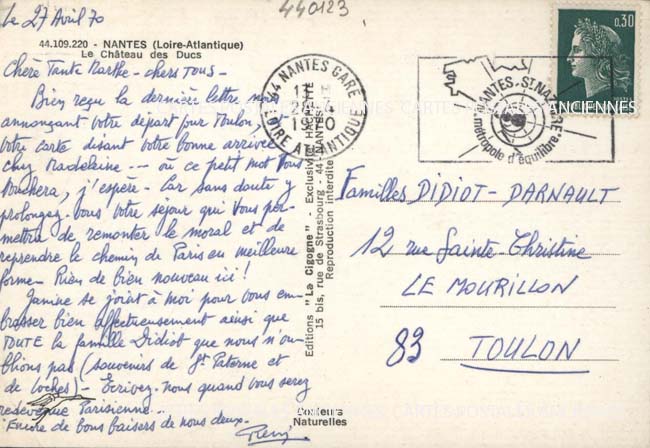 440123
le 27 Avril 70
44.109.220 - NANTES (Loire-Atlantique)
Le Château des Ducs
Chère Tante Marthe - chers tous -
Bien reçu la dernière lettre nous
annonçant votre départ pour Toulon,
votre carte disant votre bonne arrivée
chez Madeleine -- où ce petit mot vous
touchera, j'espère - Car sans doute y
prolongez-vous votre séjour qui vous per-
mettra de remonter le moral et de
reprendre le chemin de Paris en meilleure
forme - Rien de bien nouveau ici !
se joint à moi pour vous em-
brasser bien affectueusement ainsi que
TOUTE la famille Didiot que nous n'ou-
blions pas (souvenirs de St Paterne et
de Loches) - Écrivez-nous quand vous serez
redevenue Parisienne...
Encore de bons baisers de nous deux.
Couleurs
Naturelles
Editions "La Cigogne" - Exclusivité HACHETTE
15 bis, rue de Strasbourg - 44-NANTES
Reproduction interdite
44 NANTES GARE
LOIRE ATLANTIQUE
1970
NANTES-ST NAZAIRE
métropole d'équilibre
0,30
CARTES POSTALES ANCIENNES
Familles DIDIOT - DARNAULT
12 rue Sainte-Christine
LE MOURILLON
83 TOULON